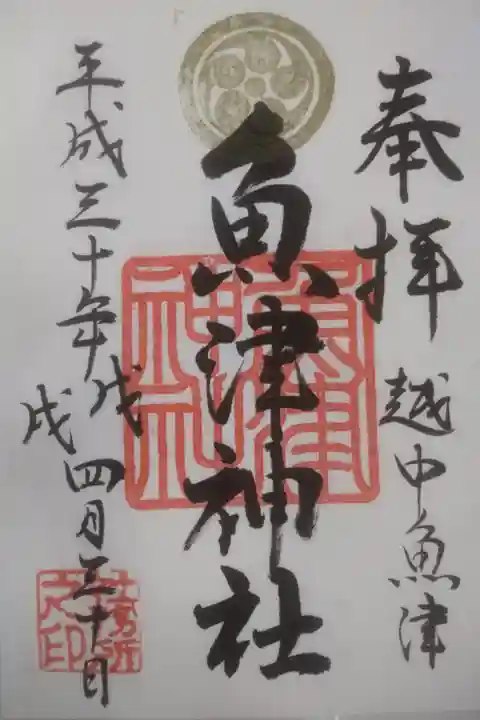 奉拝 越中魚津
魚津神社
魚津神社
平成三十年戊戌四月三十日